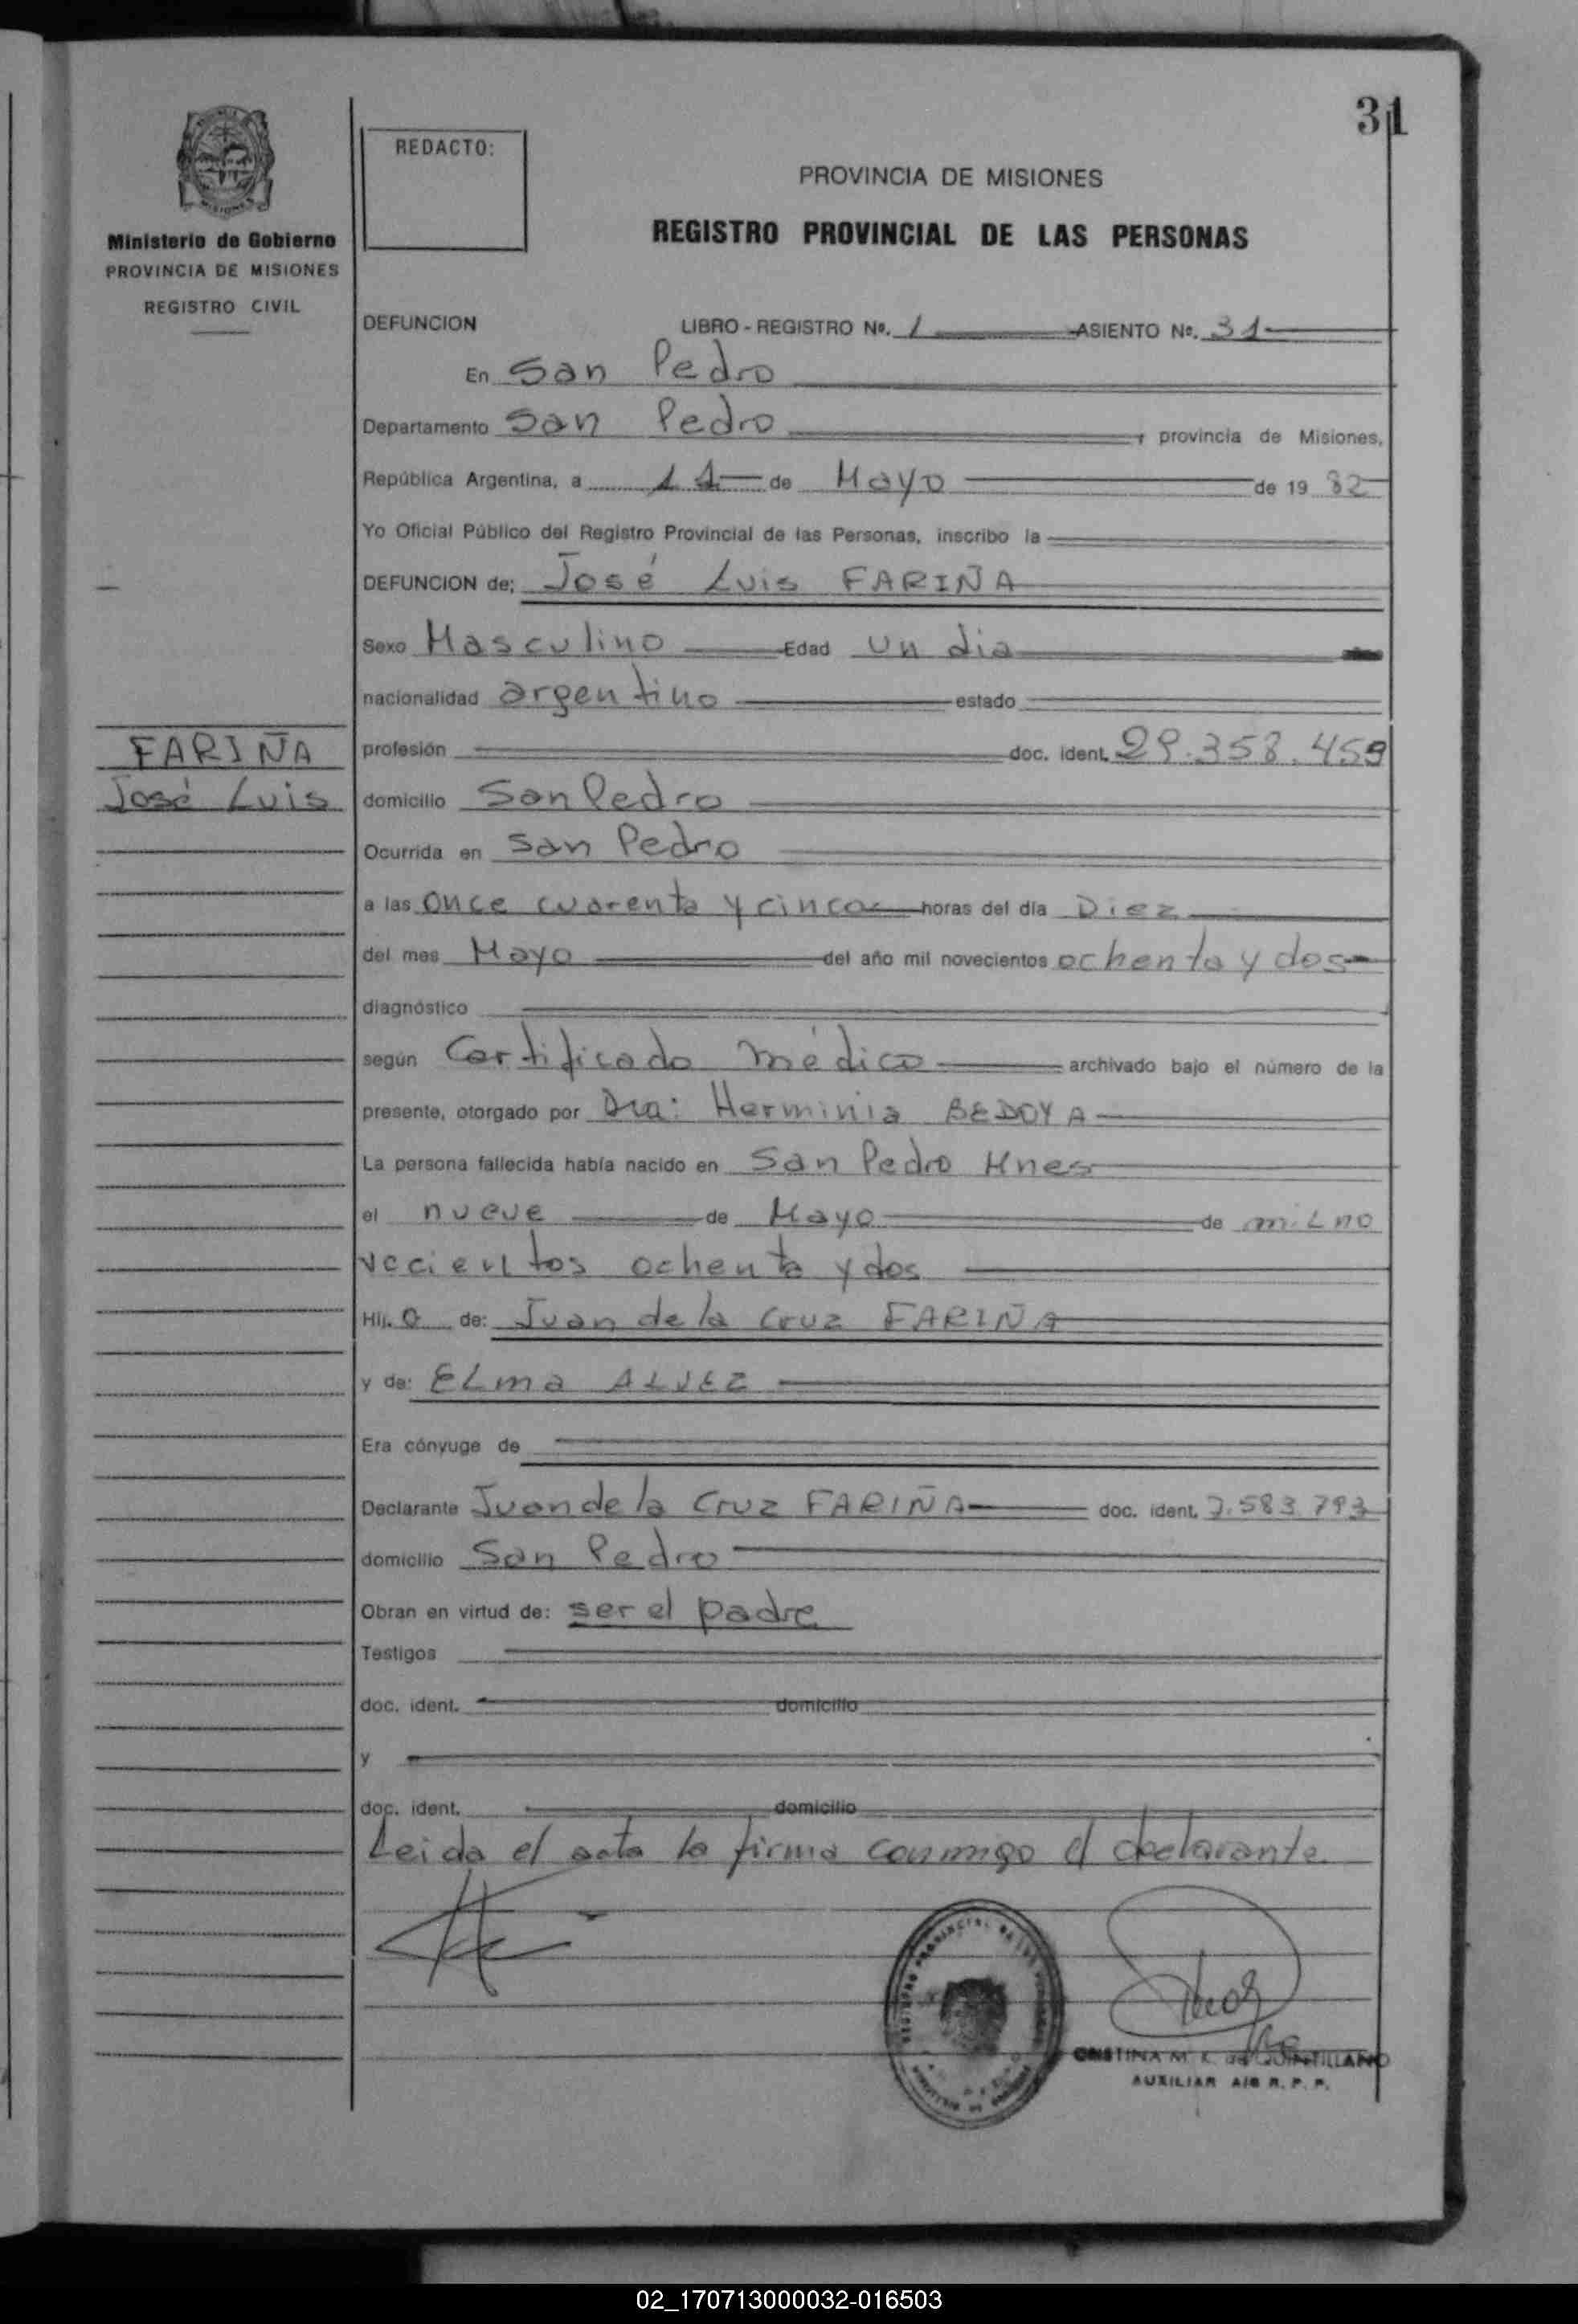 31
REDACTO:
PROVINCIA DE MISIONES
REGISTRO PROVINCIAL DE LAS PERSONAS
Ministerio de Gobierno
PROVINCIA DE MISIONES
REGISTRO CIVIL
DEFUNCION LIBRO - REGISTRO Nº. 1 ASIENTO Nº. 31
En San Pedro
Departamento San Pedro, provincia de Misiones,
República Argentina, a 11 de Mayo de 19 82
Yo Oficial Público del Registro Provincial de las Personas, inscribo la
DEFUNCION de; José Luis FARIÑA
Sexo Masculino Edad un dia
nacionalidad argentino estado
FARIÑA
José Luis
profesión doc. ident. 29.358.459
domicilio San Pedro
Ocurrida en San Pedro
a las once cuarenta y cinco horas del día Diez
del mes Mayo del año mil novecientos ochenta y dos
diagnóstico
según Certificado médico archivado bajo el número de la
presente, otorgado por Dra: Herminia BEDOYA
La persona fallecida había nacido en San Pedro Mnes
el nueve de Mayo de mil no
vecientos ochenta y dos
Hij. o de: Juan de la Cruz FARIÑA
y de: ELma ALVEZ
Era cónyuge de
Declarante Juan de la Cruz FARIÑA doc. ident. 7.583.793
domicilio San Pedro
Obran en virtud de: ser el padre
Testigos
doc. ident. domicilio
y
doc. ident. domicilio
Leida el acta la firma conmigo el declarante
REGISTRO PROVINCIAL DE LAS PERSONAS
CRISTINA M. K. de QUINTILLANO
AUXILIAR A/C R. P. P.
02_170713000032-016503